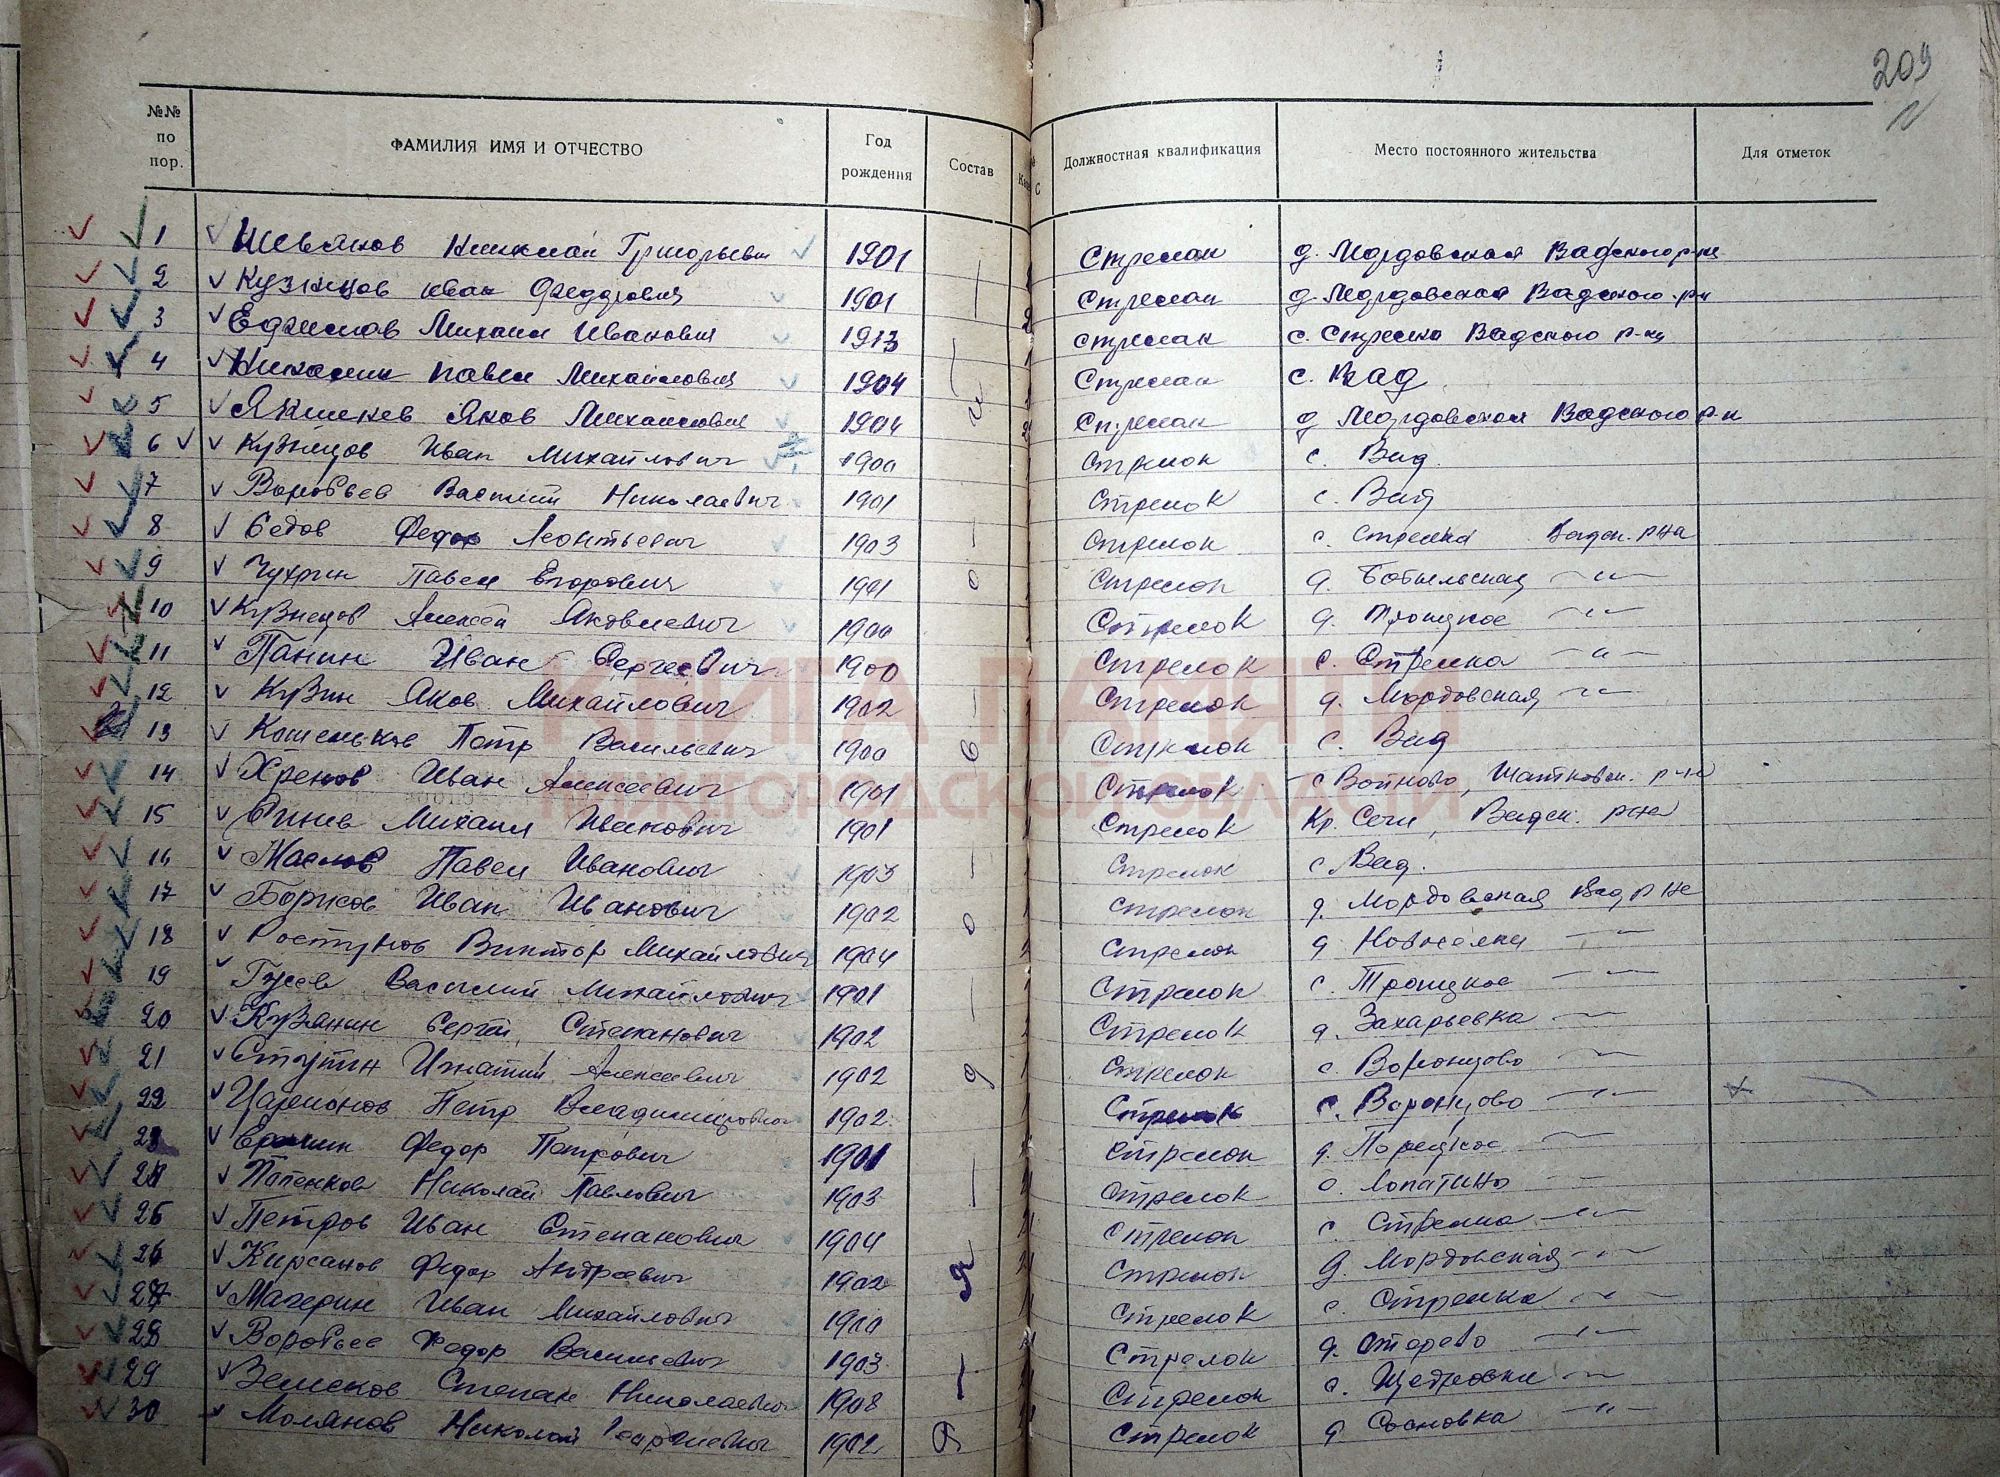 209
№№ по пор. ФАМИЛИЯ ИМЯ И ОТЧЕСТВО Год рождения Состав Должностная квалификация Место постоянного жительства Для отметок
1 Николай Григорьевич 1901 Стрелок д. Мордовская Вадского р-на
2 Кузнецов Иван Федорович 1901 Стрелок д. Мордовская Вадского р-н
3 Михаил Иванович 1913 Стрелок с. Стрелка Вадского р-на
4 Павел Михайлович 1904 Стрелок с. Вад
5 Яков Михайлович 1904 Стрелок д Мордовская Вадского р-н
6 Кузнецов Иван Михайлович 1900 Стрелок с. Вад.
7 Воробьев Василий Николаевич 1901 Стрелок с. Вад
8 Седов Федор Леонтьевич 1903 Стрелок с. Стрелка Вадск. р-на
9 Чухрин Павел Егорович 1901 Стрелок д. Бобыльская —"—
10 Кузнецов Алексей Яковлевич 1900 Стрелок д. Троицкое —"—
11 Панин Иван Сергеевич 1900 Стрелок с. Стрелка —"—
12 Кузин Яков Михайлович 1902 Стрелок д. Мордовская —"—
13 Кошельков Петр Васильевич 1900 Стрелок с. Вад
14 Хренов Иван Алексеевич 1901 Стрелок с Войново, Шатковск. р-н
15 Синев Михаил Иванович 1901 Стрелок Кр. Вадск. р-на
16 Маслов Павел Иванович 1903 Стрелок с Вад.
17 Борисов Иван Иванович 1902 Стрелок д. Мордовская Вад р-на
18 Ростунов Виктор Михайлович 1904 Стрелок д Новоселки —"—
19 Гусев Василий Михайлович 1901 Стрелок с. Троицкое —"—
20 Сергей Степанович 1902 Стрелок д. Захарьевка —"—
21 Ступин Игнатий Алексеевич 1902 Стрелок с. Воронцово —"—
22 Петр Владимирович 1902 Стрелок с. Воронцово —"—
23 Федор Петрович 1901 Стрелок д. —"—
24 Папенков Николай Павлович 1903 Стрелок Лопатино —"—
25 Петров Иван Степанович 1904 Стрелок с. Стрелка —"—
26 Кирсанов Федор Андреевич 1902 Стрелок д. Мордовская —"—
27 Материн Иван Михайлович 1900 Стрелок с. Стрелка —"—
28 Воробьев Федор Васильевич 1903 Стрелок д. —"—
29 Земсков Степан Николаевич 1908 Стрелок —"—
30 Молянов Николай Георгиевич 1902 Стрелок д Сосновка —"—
КНИГА ПАМЯТИ
НИЖЕГОРОДСКОЙ ОБЛАСТИ